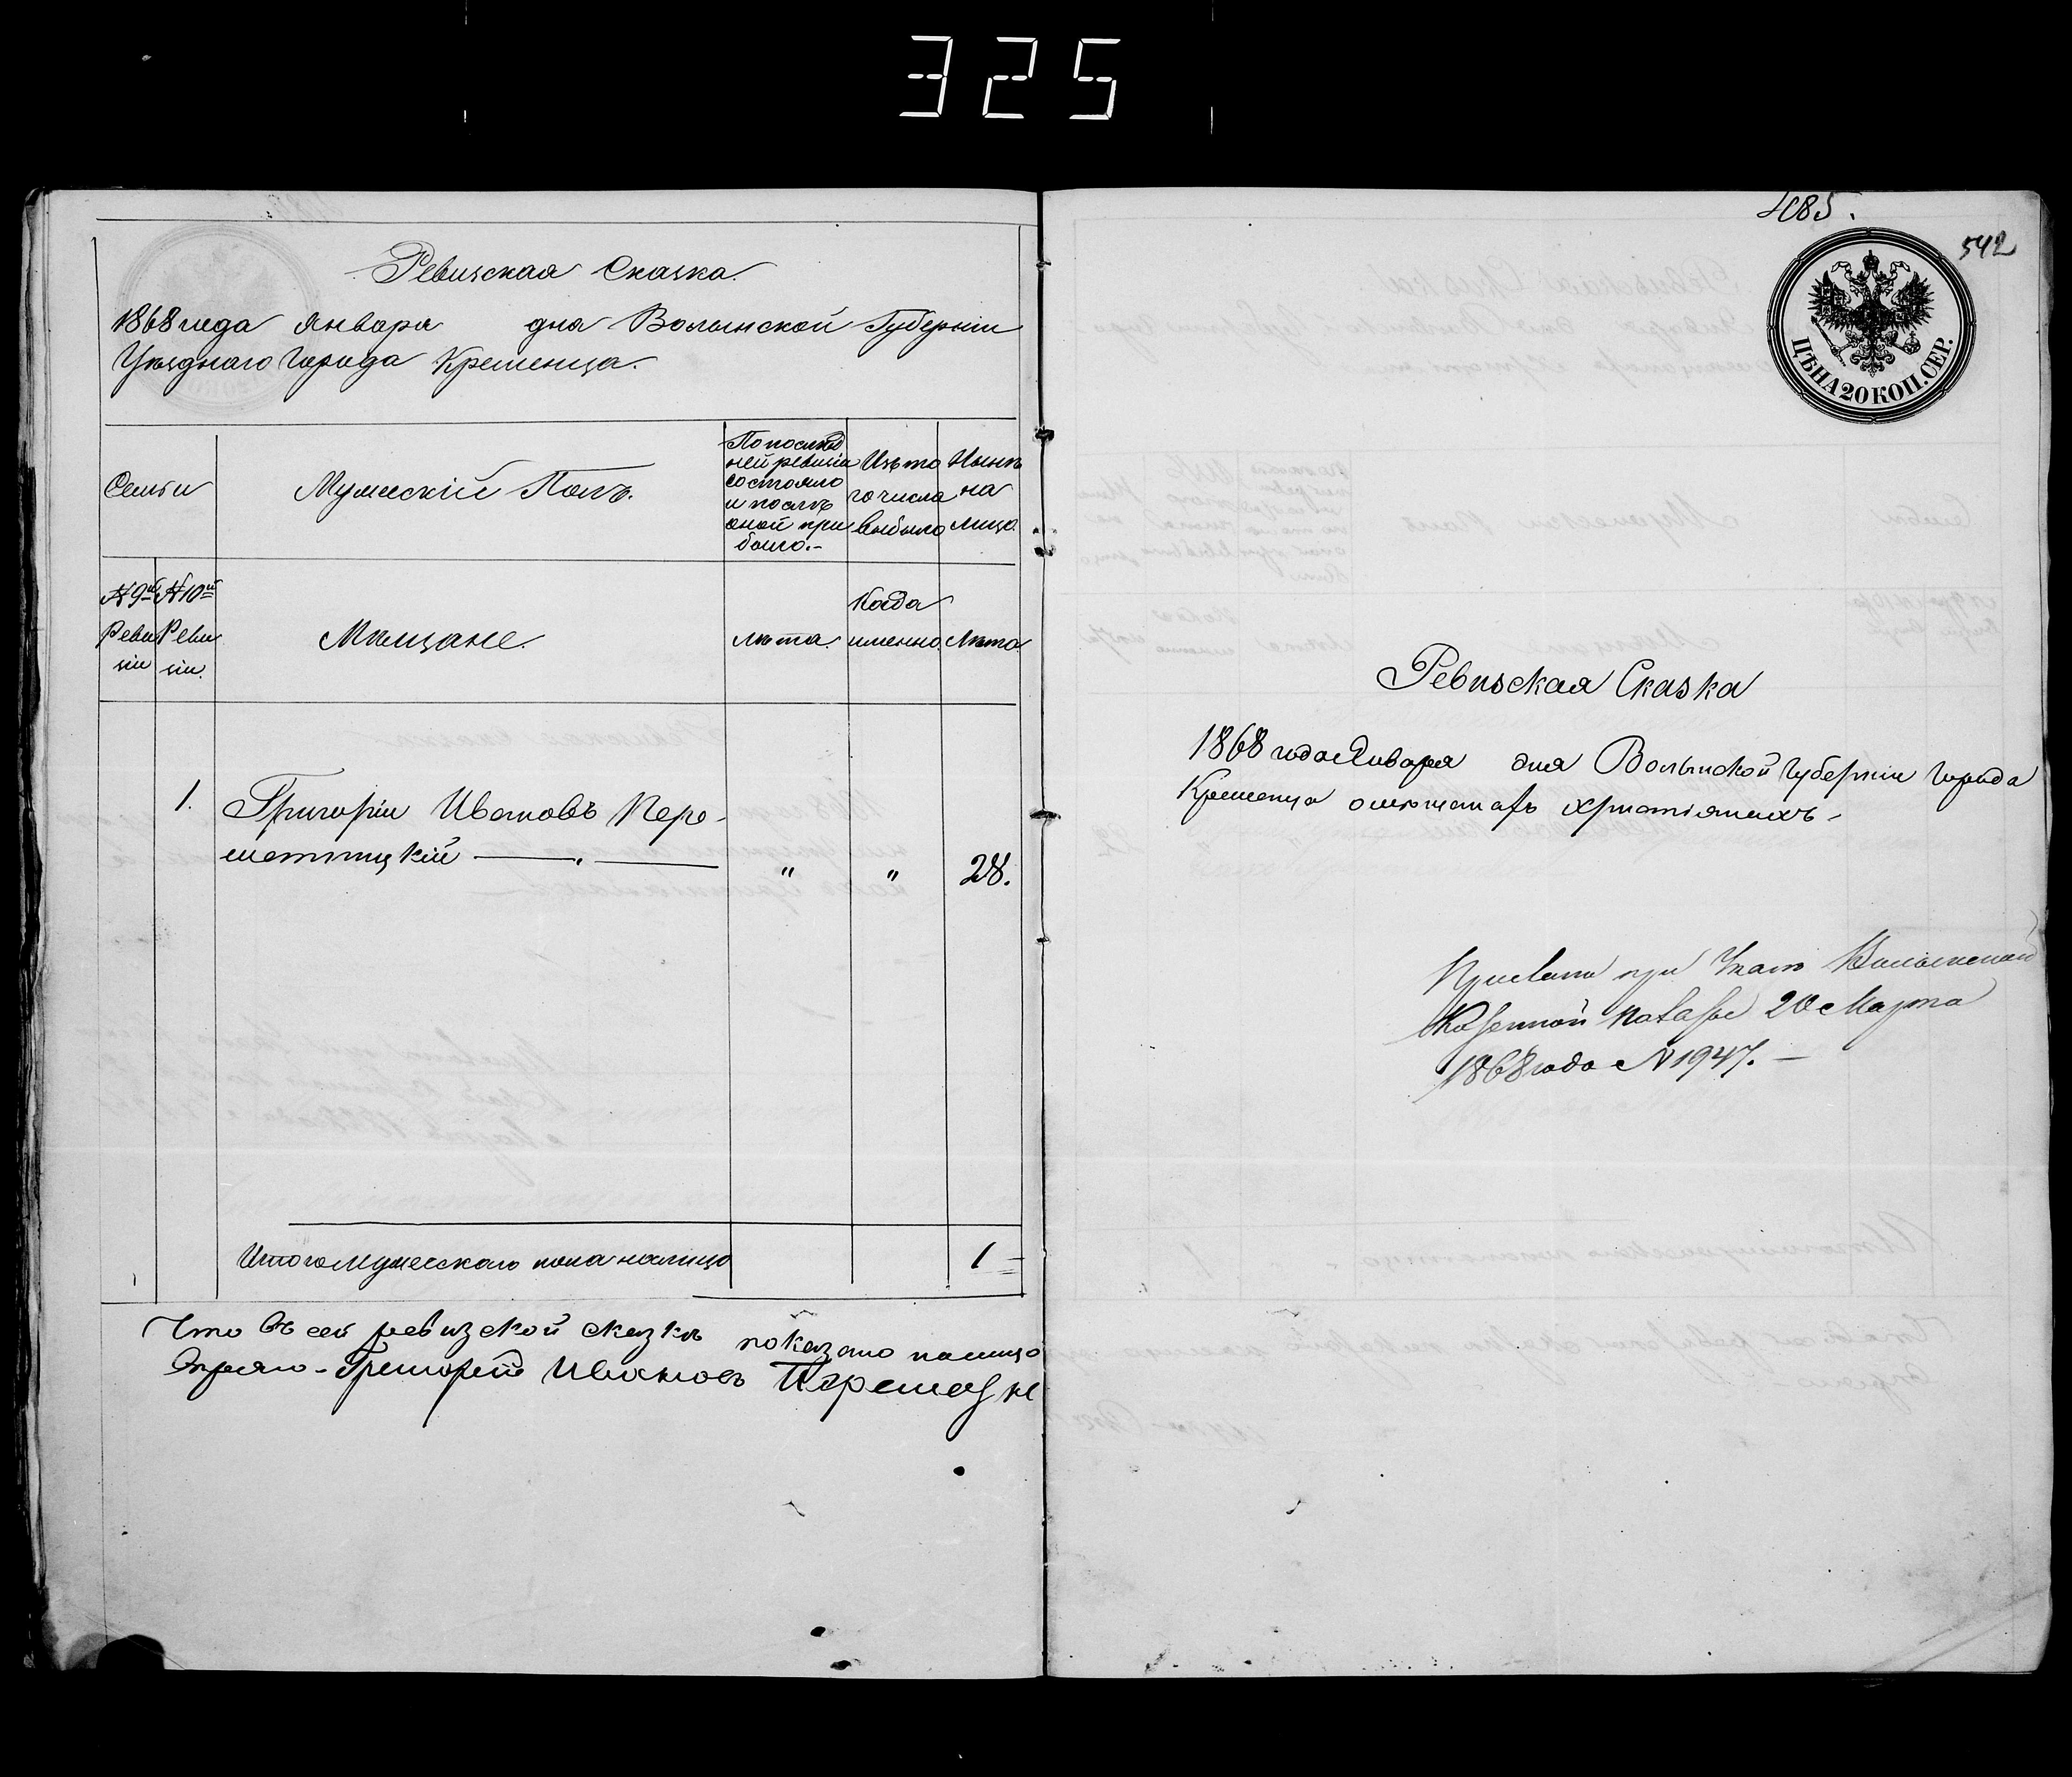 325
Ревизская Сказка.
1868 года Января дня Волынской Губерніи
Уѣзднаго Города Кременца.
Семьи
Мужескій Полъ.
По послѣд
ней ревизіи
состояло
и послѣ
оной при
было.-
Изъ то
го числа
выбыло
Нынѣ
на
лицо.
№ 9й
Реви
зіи
№ 10й
Реви
зіи.
Мѣщане.
лѣта.
Когда
именно.
Лѣта.
1.
Григорій Ивановъ Пере-
шетицкій
" " 28.
Итого мужескаго пола налицо 1
Что въ сей ревизской сказкѣ показано налицо
Григорій Ивановъ
485.
542
ЦѢНА 20 КОП. СЕР.
Ревизская Сказка
1868 года Января дня Волынской Губерніи Города
Кременца о мѣщанахъ христіянахъ.
Прислана при Указѣ Волынской
Казенной Палаты 20 Марта
1868 года № 1947. —